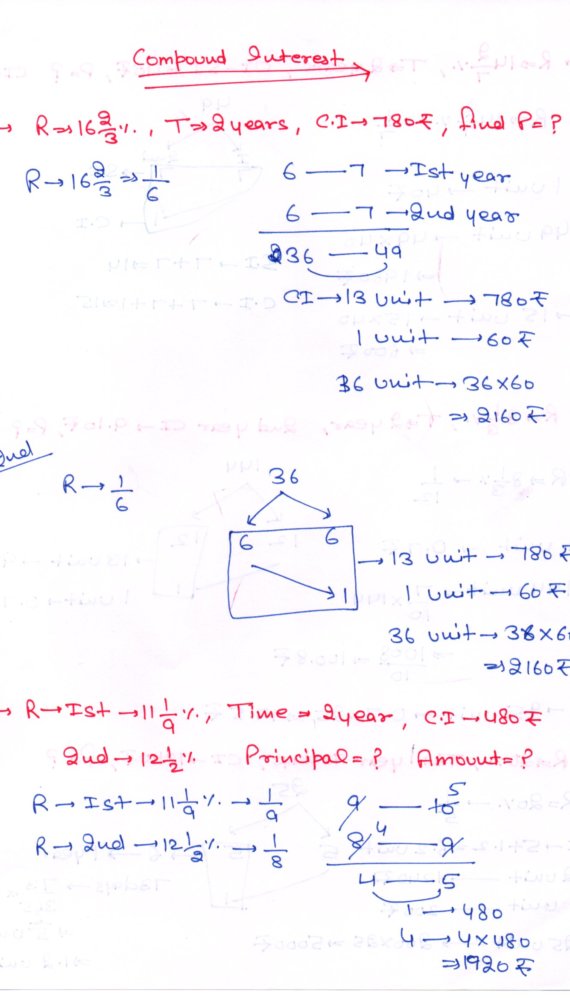 Compound Interest
→ R⇒16 2/3 %, T⇒2 years, C.I→780₹, find P=?
R→16 2/3 ⇒ 1/6
6 — 7 → Ist year
6 — 7 → 2nd year
36 — 49
CI→13 unit → 780₹
1 unit → 60₹
36 unit → 36×60
⇒ 2160₹
2nd
R→ 1/6
36
6 6
1
→ 13 unit → 780₹
1 unit → 60₹
36 unit → 36×60
⇒2160₹
→ R→Ist →11 1/9 %, Time = 2year, C.I→480₹
2nd→12 1/2 % Principal=? Amount=?
R→Ist→11 1/9 % → 1/9
R→2nd→12 1/2 % → 1/8
9 — 10 5
8 4 — 9
4 — 5
1 → 480
4 → 4×480
⇒1920₹